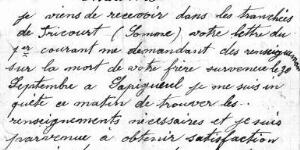 je viens de recevoir dans les tranchés
de Tricourt (Somme) votre lettre du
1er courant me demandant des renseignements
sur la mort de votre frère survenue le 30
Septembre a Sapigneul je me suis in
quiété ce matin de trouver les..
renseignements nécessaires et je suis
parvenue à obtenir satisfaction